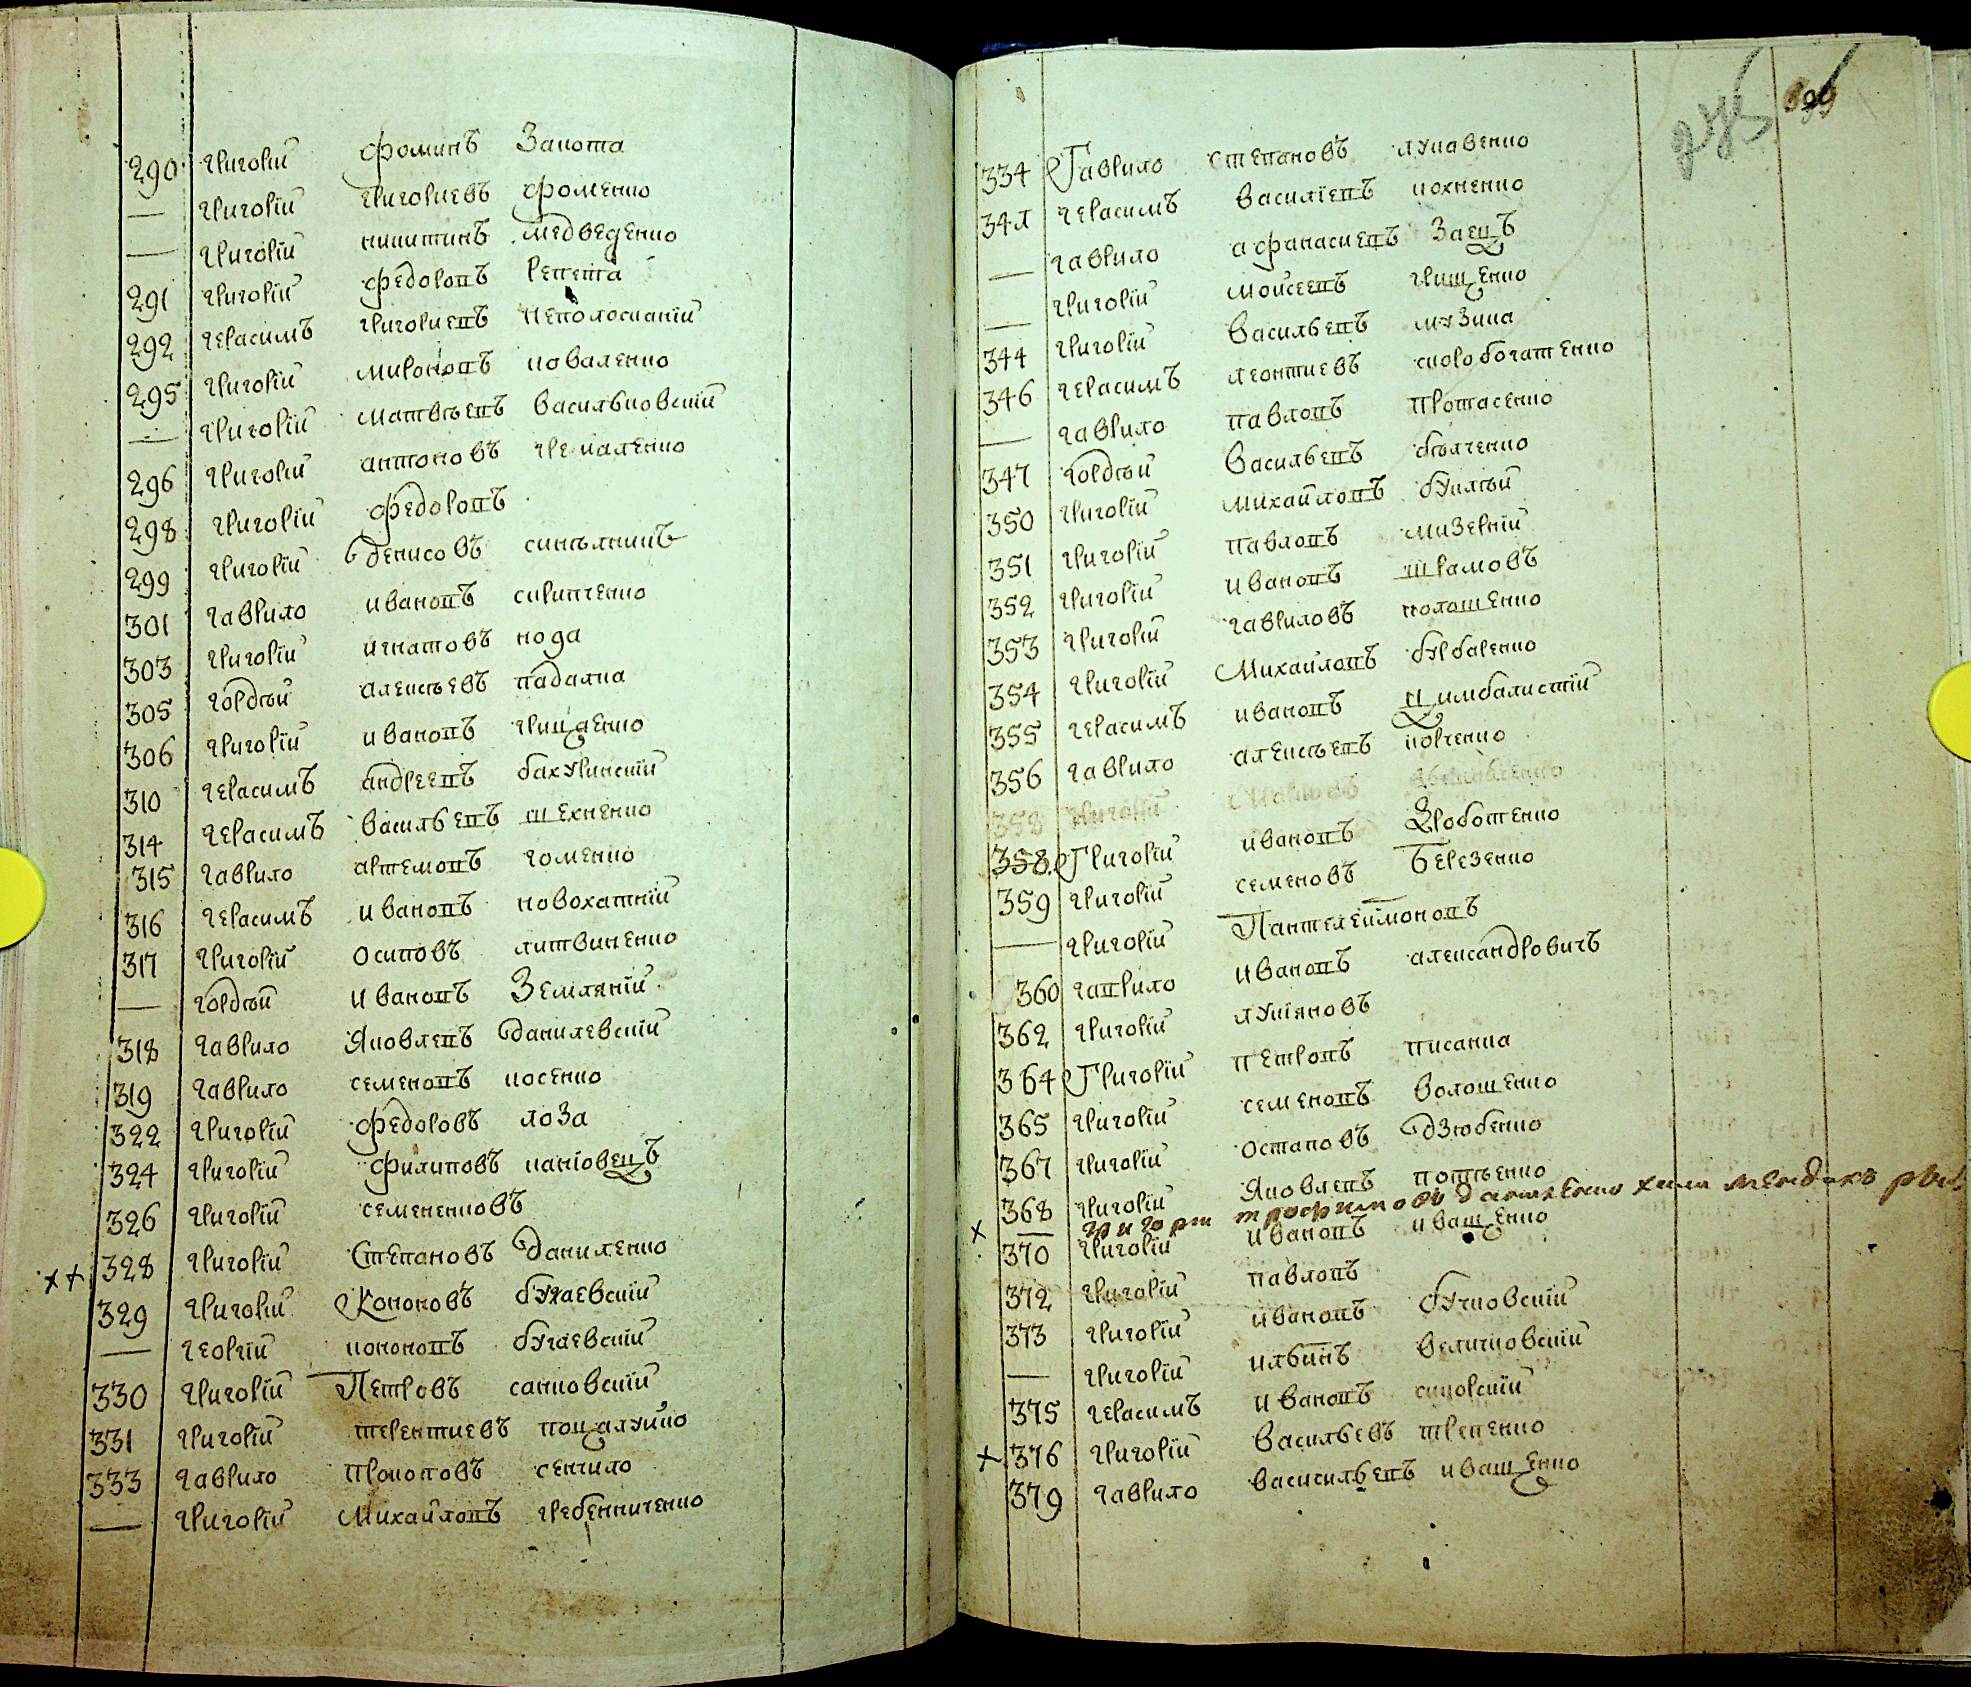 290 григорій фоминъ Закота
— григорій григориевъ фоменко
— григорій никитинъ медведенко
291 григорій федоровъ репетa
292 герасимъ григориевъ неполосканій
295 григорій мироновъ коваленко
— григорій матвѣевъ васильковскій
296 григорій антоновъ
298 григорій федоровъ
299 григорій денисовъ
301 гаврило ивановъ скрипченко
303 григорій игнатовъ кода
305 гордѣй алексѣевъ падалка
306 григорій ивановъ грищенко
310 герасимъ андреевъ бахуринскій
314 герасимъ васильевъ шехненко
315 гаврило артемовъ гоменко
316 герасимъ ивановъ новохатній
317 григорій осиповъ литвиненко
— гордѣй ивановъ Земляній
318 гаврило Яковлевъ данилевскій
319 гаврило семеновъ косенко
322 григорій федоровъ лоза
324 григорій филиповъ каніовецъ
326 григорій семененковъ
328 григорій Степановъ даниленко
329 григорій Кононовъ бугаевскій
— георгій кононовъ бугаевскій
330 григорій Петровъ санковскій
331 григорій терентиевъ поцалуйко
333 гаврило прокоповъ сенчило
— григорій Михайловъ гребенниченко
399
334 Гаврило степановъ лукавенко
341 герасимъ василіевъ кохненко
— гаврило афанасиевъ Заецъ
— григорій мойсеевъ грищенко
344 григорій васильевъ музика
346 герасимъ леонтиевъ скоробогатенко
— гаврило павловъ протасенко
347 гордѣй васильевъ
350 григорій михайловъ
351 григорій павловъ мизерній
352 григорій ивановъ шрамовъ
353 григорій гавриловъ колошенко
354 григорій Михайловъ бурбаренко
355 герасимъ ивановъ Цимбалистій
356 гаврило алексѣевъ
358 григорій
358. Григорій ивановъ Зроботенко
359 григорій семеновъ Березенко
— григорій Пантелеймоновъ
360 гаврило ивановъ александровичъ
362 григорій лукіяновъ
364 Григорій петровъ писанка
365 григорій семеновъ волошенко
367 григорій остаповъ дзюбенко
368 григорій Яковлевъ потѣенко
— григори трофимовъ
370 григорій ивановъ иващенко
372 григорій павловъ
373 григорій ивановъ бучковскій
— григорій ильинъ величковскій
375 герасимъ ивановъ сикорскій
376 григорій васильевъ трепенко
379 гаврило васисильевъ иващенко